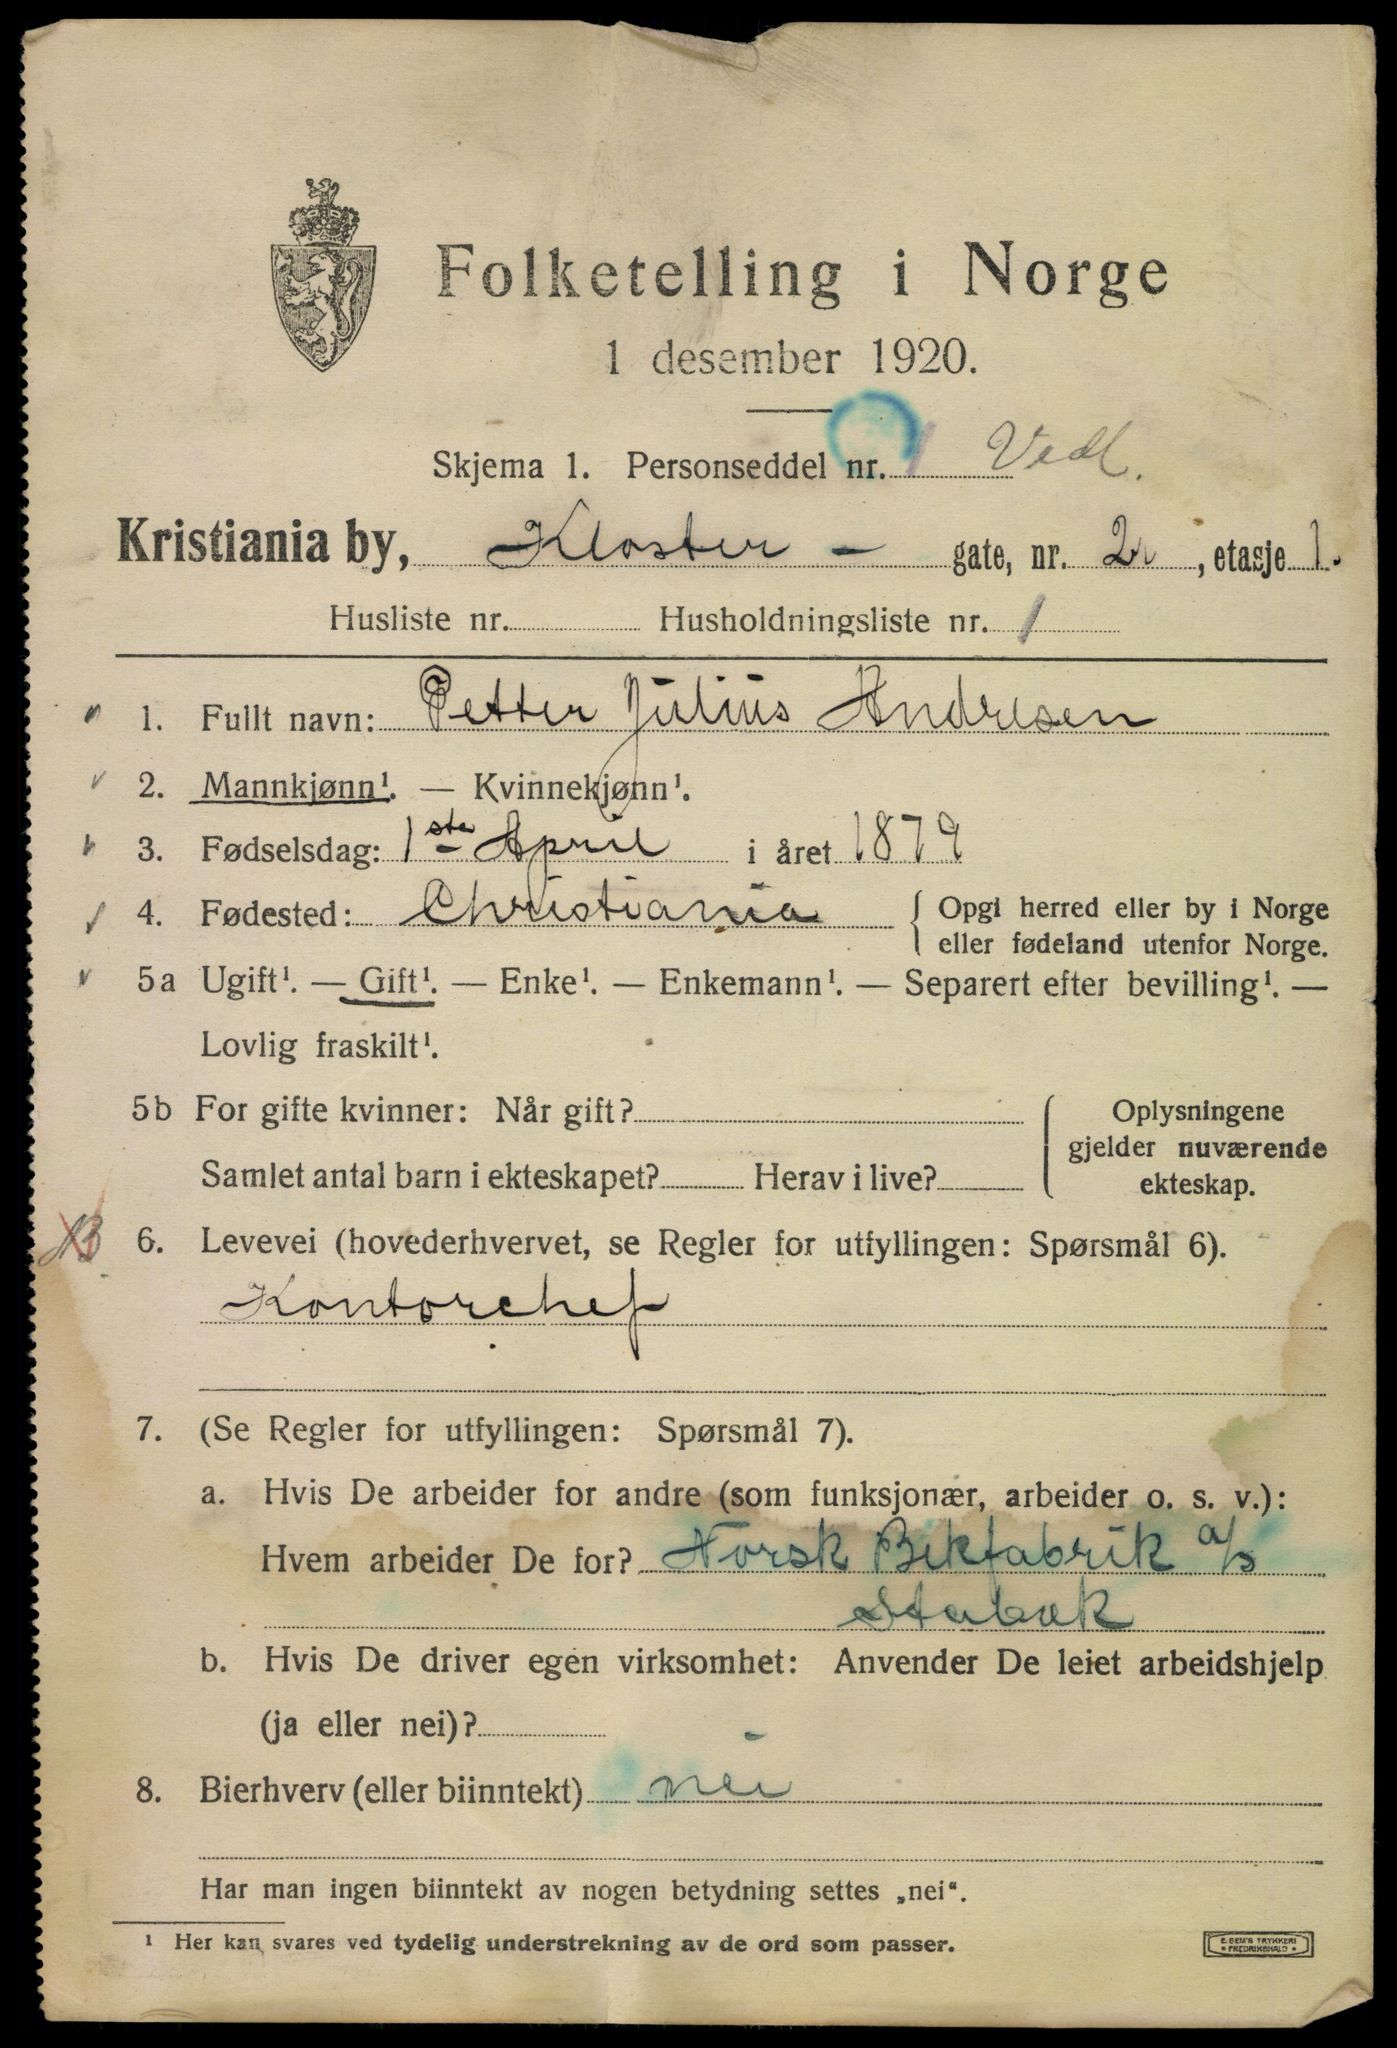 Folketelling i Norge
1 desember 1920.
Skjema 1. Personseddel nr. 1 Vedl.
Kristiania by, Kloster - gate, nr. 2, etasje 1.
Husliste nr. Husholdningsliste nr. 1
1. Fullt navn: Petter Julius Andresen
2. Mannkjønn¹. — Kvinnekjønn¹.
3. Fødselsdag: 1ste April i året 1879
4. Fødested: Christiania { Opgi herred eller by i Norge
eller fødeland utenfor Norge.
5a Ugift¹. — Gift¹. — Enke¹. — Enkemann¹. — Separert efter bevilling¹. —
Lovlig fraskilt¹.
5b For gifte kvinner: Når gift? Oplysningene
gjelder nuværende
Samlet antal barn i ekteskapet? Herav i live? ekteskap.
6. Levevei (hovederhvervet, se Regler for utfyllingen: Spørsmål 6).
Kontorchef
7. (Se Regler for utfyllingen: Spørsmål 7).
a. Hvis De arbeider for andre (som funksjonær, arbeider o. s. v.):
Hvem arbeider De for? Norsk Bekfabrik a/s
Stabæk
b. Hvis De driver egen virksomhet: Anvender De leiet arbeidshjelp
(ja eller nei)?
8. Bierhverv (eller biinntekt) nei
Har man ingen biinntekt av nogen betydning settes „nei“.
¹ Her kan svares ved tydelig understrekning av de ord som passer.
E. SEM'S TRYKKERI
FREDRIKSHALD